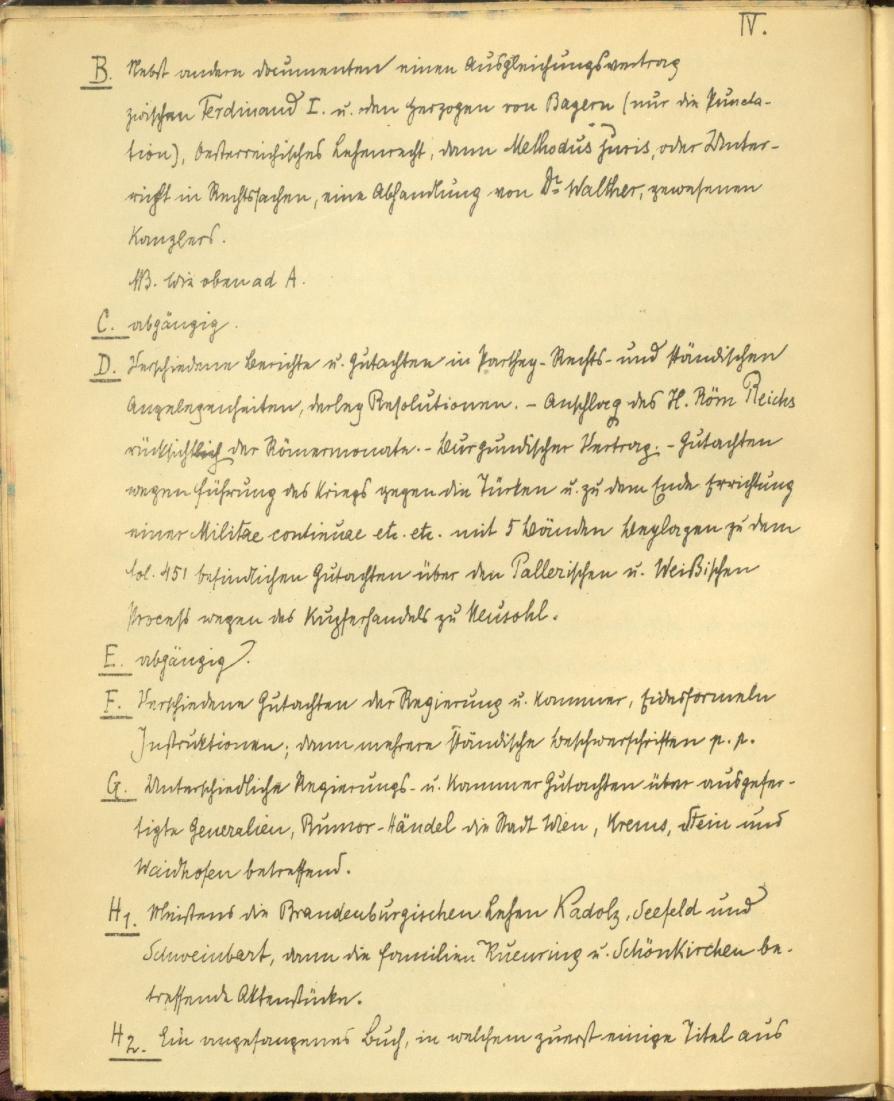 IV.
B. Nebst andern documenten einen Ausgleichungsvertrag
zwischen Ferdinand I. u. den Herzogen von Bayern (nur die Puncta-
tion), Oesterreichisches Lehenrecht, dann Methodus juris, oder Unter-
richt in Rechtssachen, eine Abhandlung von Dr Walther, gewesenen
Kanzlers.
NB. Wie oben ad A.
C. abgängig.
D. Verschiedene Berichte u. Gutachten in Parthey- Rechts- und ständischen
Angelegenheiten, derley Resolutionen. - Anschlag des H. Röm Reichs
rücksichtlich der Römermonate. - Burgundischer Vertrag. - Gutachten
wegen Führung des Kriegs gegen die Türken u. zu dem Ende Errichtung
einer Militae continuae etc. etc. mit 5 Bänden Beylagen zu dem
fol. 451 befindlichen Gutachten über den Pallerischen u. Weißischen
Process wegen des Kupferhandels zu Neusohl.
E. abgängig.
F. Verschiedene Gutachten der Regierung u. Kammer, Eidesformeln
Instruktionen; dann mehrere ständische Beschwerschriften p. p.
G. Unterschiedliche Regierungs- u. Kammer Gutachten über ausgefer-
tigte Generalien, Rumor-Händel die Stadt Wien, Krems, Stein und
Waidhofen betreffend.
H1. Meistens die Brandenburgischen Lehen Kadolz, Seefeld und
Schweinbart, dann die Familien Kuenring u. Schönkirchen be-
treffende Aktenstücke.
H2. Ein angefangenes Buch, in welchem zuerst einige Titel aus